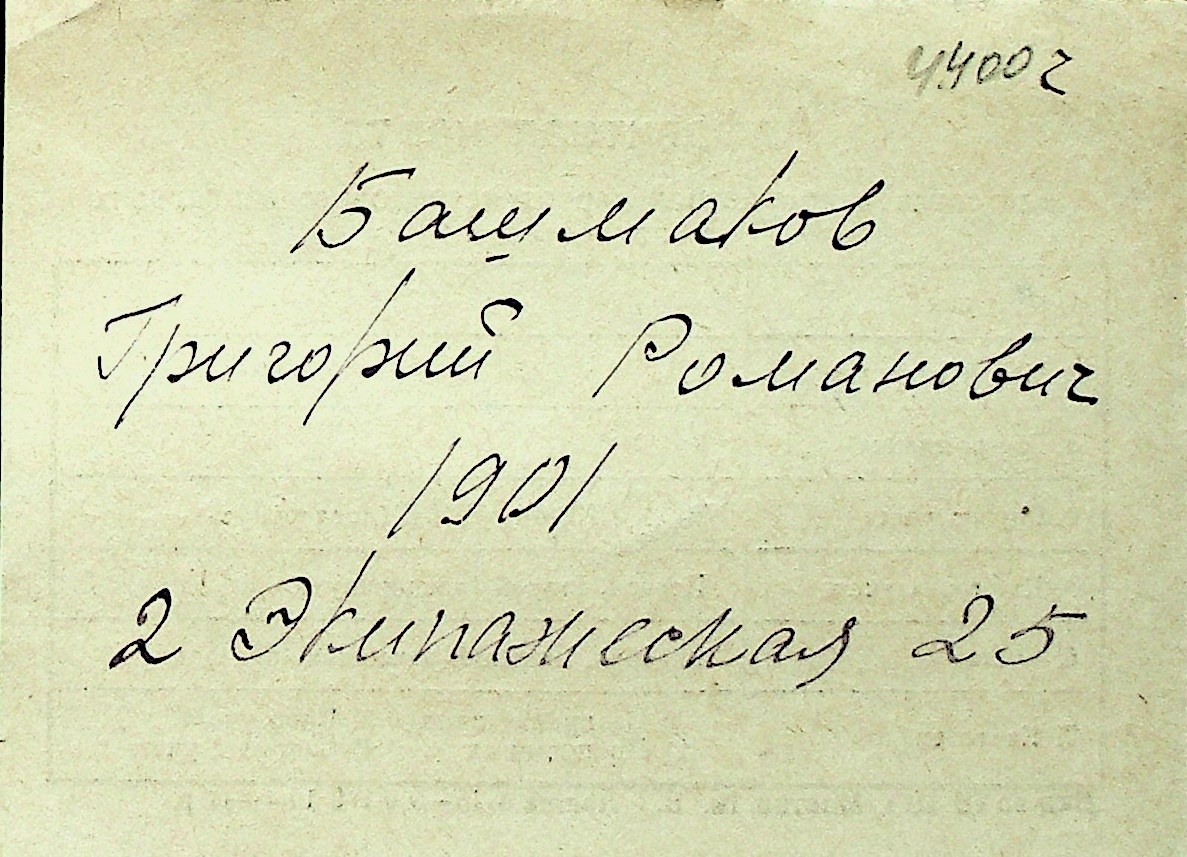 4400 г
Башмаков
Григорий Романович
1901
2 Экипажеская 25